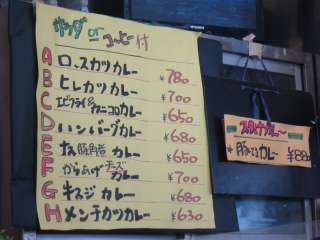 サラダ or コーヒー 付
A ロースカツカレー ¥780
B ヒレカツカレー ¥700
C エビフライ&カニコロカレー ¥650
D ハンバーグカレー ¥680
E なす豚角煮カレー ¥650
F からあげチーズカレー ¥700
G 牛スジカレー ¥680
H メンチカツカレー ¥630
カレー
カレー ¥880